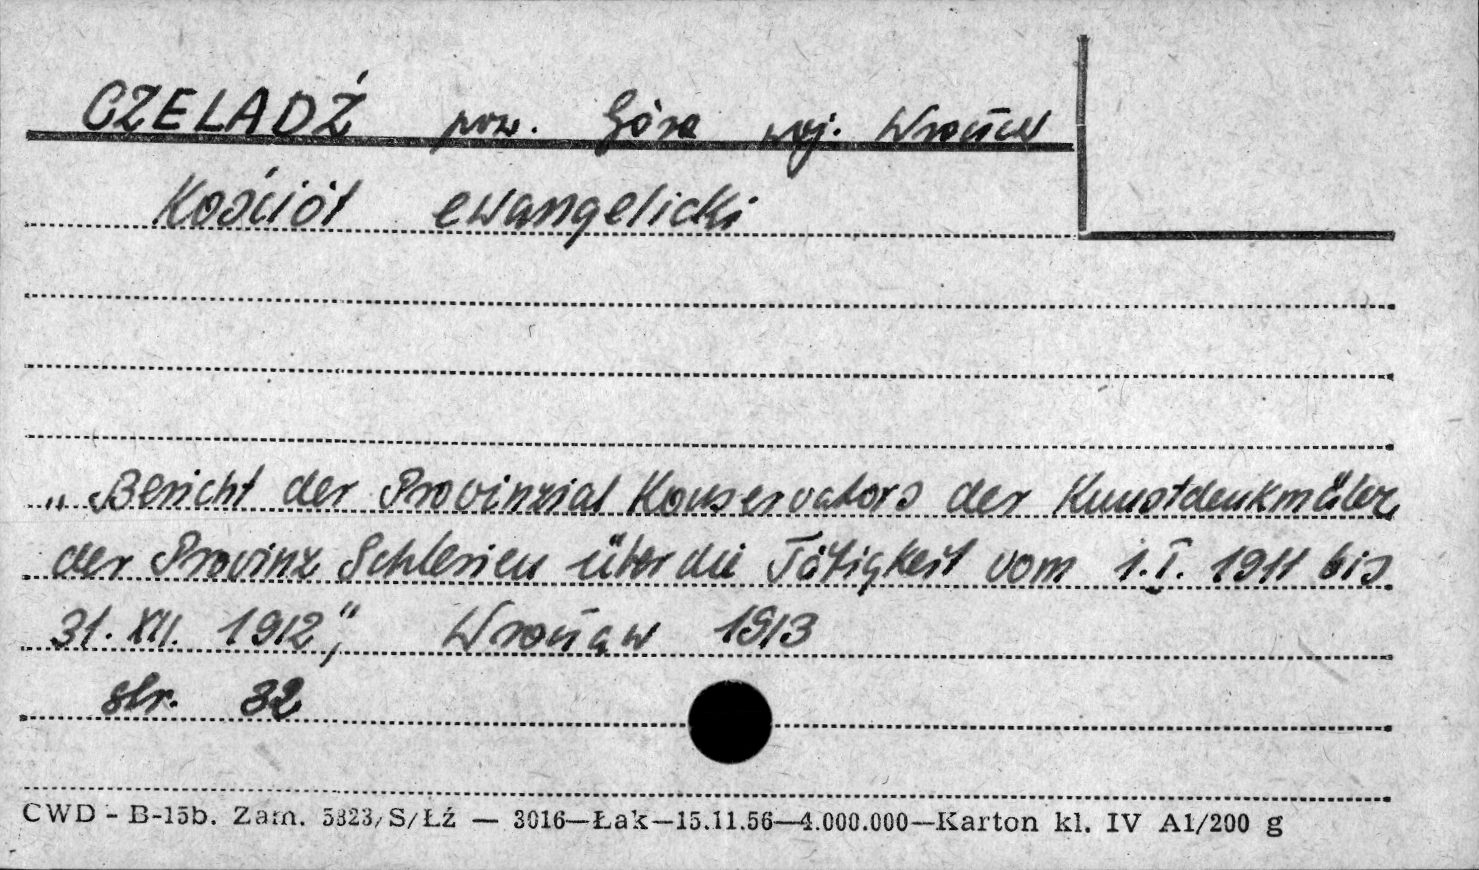 CZELADŹ pow. Góra woj. Wrocław
Kościół ewangelicki
„Bericht der Provinzial Konservators der Kunstdenkmäler
der Provinz Schlesien über die Tätigkeit vom 1.I. 1911 bis
31. XII. 1912", Wrocław 1913
str. 32
CWD - B-15b. Zam. 5323/S/Łź — 3016—Łak—15.11.56—4.000.000—Karton kl. IV A1/200 g